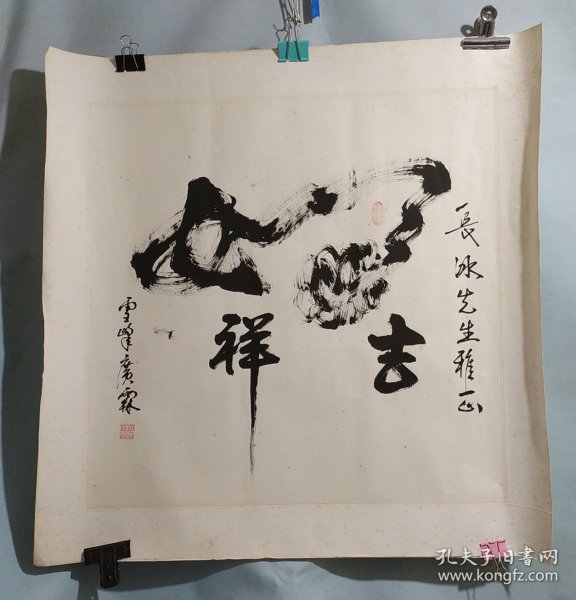 長冰先生雅正
吉祥
雪峰廣霖
孔夫子旧书网
www.kongfz.com